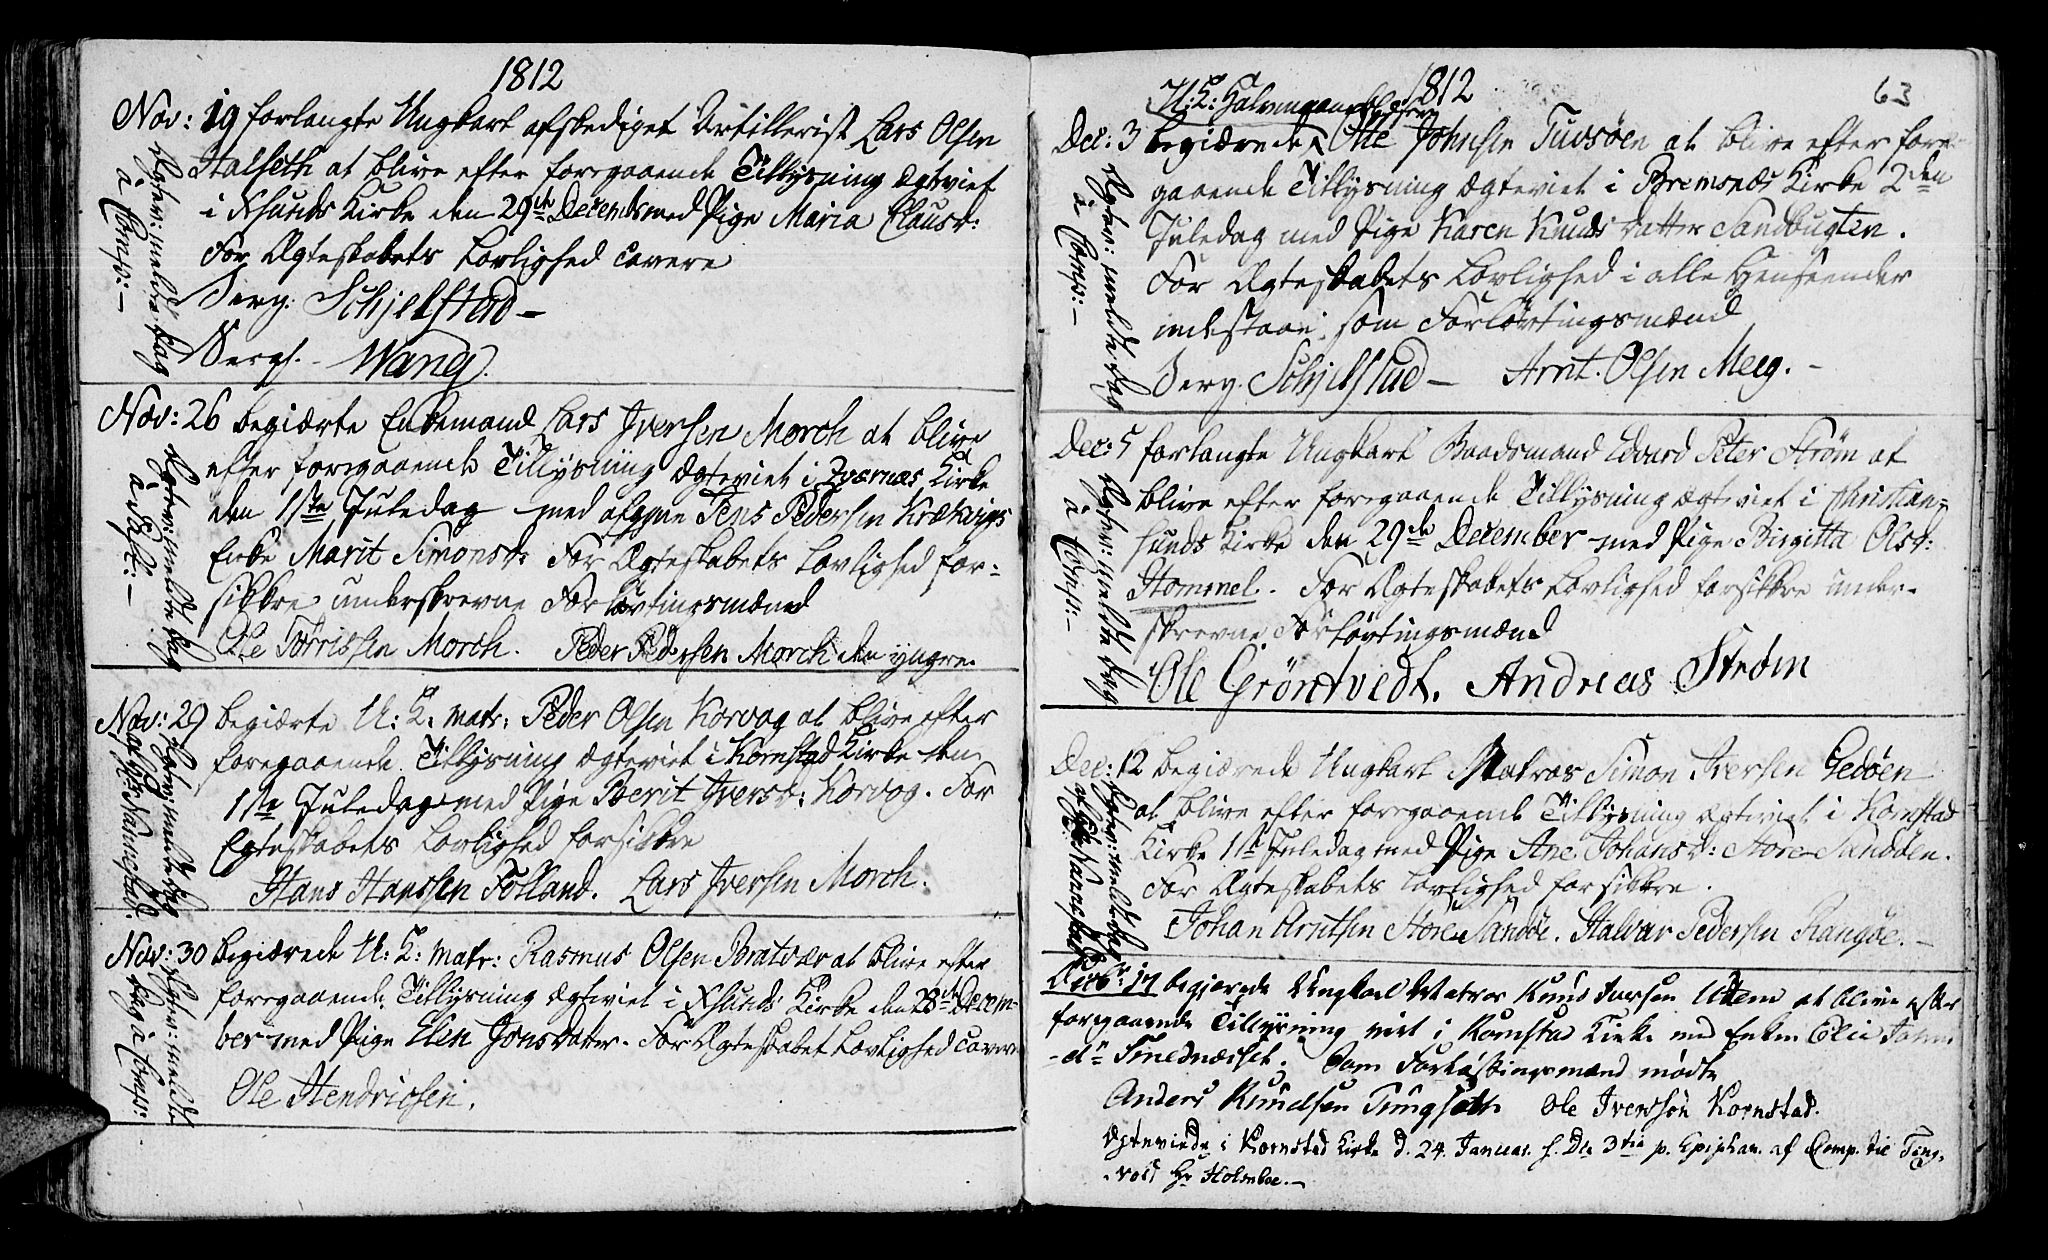 1812
Nov: 19 forlangte Ungkarl afskediget Artillerist Lars Olsen
Halseth at blive efter foregaaende Tillysning ægteviet
i Xsunds Kirke den 29de Decemb: med Pige Maria Clausd:
For Ægteskabets Lovlighed cavere
Serg: Schjelstad –
Sergs. – Wang.
Ægtev: meldte Dag
à Comps: –
Nov: 26 begiærte Enkemand Lars Iversen Morch at blive
efter foregaaende Tillysning ægteviet i Qværnæs Kirke
den 1ste Juledag med afgγne Jens Pedersen Krækvigs
Enke Marit Simonsd: For Ægteskabets Lovlighed for-
sikkre underskrevne Forlovtingsmænd
Ole Torrissen Morch. Peder Pedersen Morch den yngre.
Ægtev: meldte Dag
Nov: 29 begiærte U: K: matr: Peder Olsen Korvog at blive efter
foregaaende Tillysning ægteviet i Kornstad Kirke den
1ste Juledag med Pige Berit Iversd: Korvog. For
Egteskabets Lovlighed forsikkre
Hans Hanssen Folland. Lars Iversen Morch.
Ægtev: meldte Dag
Nov: 30 begiærede U: K: matr: Rasmus Olsen Bratvær at blive efter
foregaaende Tillysning ægteviet i Xsunds Kirke den 28de Decem-
ber med Pige Elen Jonsdatter. For Ægteskabet Lovlighed cavere
Ole Hendrichsen.
Ægtev: meldte
Dag à Comps:
1812
63
U: K:
Dec: 3 begiærede Ole Johnsen Tuvsøen at blive efter fore-
gaaende Tillysning ægteviet i Bremsnæs Kirke 2den
Juledag med Pige Karen Knuds Datter Sandbugten.
For Ægteskabets Lovlighed i alle Henseender
indestaae som Forlovtingsmænd
Serg: Schjelstad – Arnt. Olsen Meeg. –
Ægtev: meldte Dag
à Comps: –
Dec: 5 forlangte Ungkarl Baadsmand Edvard Peter Strøm at
blive efter foregaaende Tillysning ægteviet i Christian-
sunds Kirke den 29de December med Pige Birgitta Olsd:
Hommel. For Ægteskabets Lovlighed forsikkre under-
skrevne Forlovtingsmænd
Ole Gröntvedt. Andreas Strøm
Ægtev: meldte Dag
à Comps: –
Dec: 12 begiærede Ungkarl Matros Simon Iversen Gedøen
at blive efter foregaaende Tillysning ægteviet i Kornstad
Kirke 1ste Juledag med Pige Ane Johansd: Store Sandøen.
For Ægteskabets Lovlighed forsikkre.
Johan Arntsen Store Sandøe. Halvar Pedersen Rangøe. –
Ægtev: meldte Dag
Decbr: 17 begjærede Ungkarl Matros Knud Iversen Uttem at blive efter
foregaaende Tillysning viet i Kornstad Kirke med Enken
Som Forlovtingsmænd mødte
Anders Knudsen Tungseth Ole Iversøn Kornstad.
Ægteviede i Kornstad Kirke d. 24 Januar. s. Dn 3tia p. Epiphan. af Comp. til Ting-
voll Hr Holmboe. –